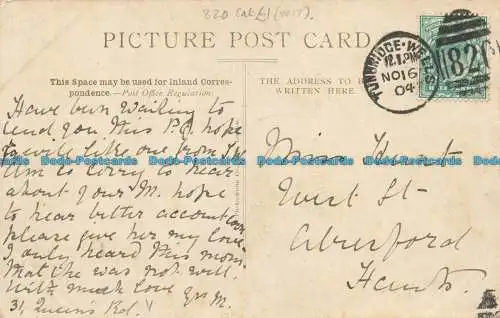 820 Cat £1 (
PICTURE POST CARD
This Space may be used for Inland Corres-
pondence.—Post Office Regulation.
THE ADDRESS TO B
WRITTEN HERE.
TUNBRIDGE·WELLS
12.1PM
NO 16
04
820
Have been waiting to
send you this P.C. hope
to write like one from
Am so sorry to hear
about your M. hope
to hear better account
please give her my love
I only heard this morn.
that she was not well.
With much love yrs M.
31 Queen's Rd.
Miss
West St
Alresford
Hants.
Bodo-Postcards Bodo-Postcards Bodo-Postcards Bodo-Postcards Bodo-Postcards